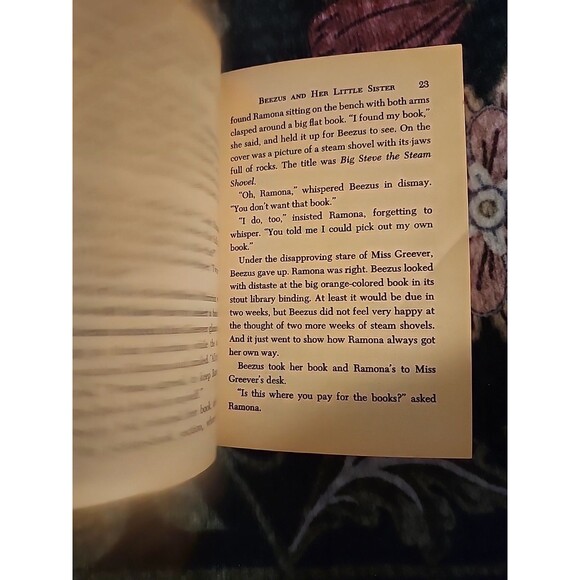 BEEZUS AND HER LITTLE SISTER 23
found Ramona sitting on the bench with both arms
clasped around a big flat book. "I found my book,"
she said, and held it up for Beezus to see. On the
cover was a picture of a steam shovel with its jaws
full of rocks. The title was Big Steve the Steam
Shovel.
"Oh, Ramona," whispered Beezus in dismay.
"You don't want that book."
"I do, too," insisted Ramona, forgetting to
whisper. "You told me I could pick out my own
book."
Under the disapproving stare of Miss Greever,
Beezus gave up. Ramona was right. Beezus looked
with distaste at the big orange-colored book in its
stout library binding. At least it would be due in
two weeks, but Beezus did not feel very happy at
the thought of two more weeks of steam shovels.
And it just went to show how Ramona always got
her own way.
Beezus took her book and Ramona's to Miss
Greever's desk.
"Is this where you pay for the books?" asked
Ramona.